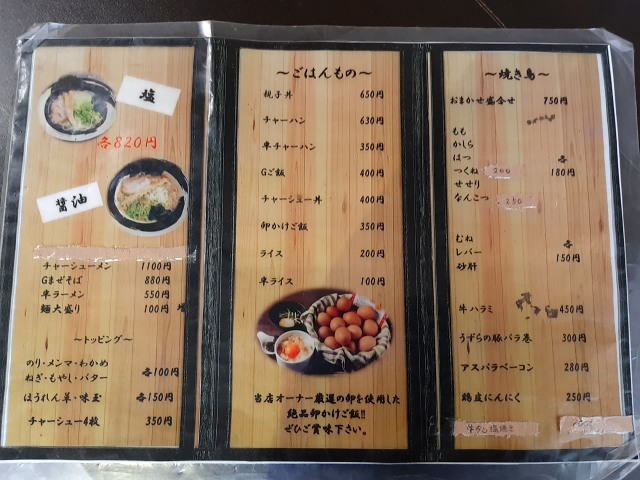 塩
各820円
醤油
チャーシューメン 1100円
Gまぜそば 880円
半ラーメン 550円
麺大盛り 100円 増
～トッピング～
のり・メンマ・わかめ
ねぎ・もやし・バター 各100円
ほうれん草・味玉 各150円
チャーシュー4枚 350円
～ごはんもの～
親子丼 650円
チャーハン 630円
半チャーハン 350円
Gご飯 400円
チャーシュー丼 400円
卵かけご飯 350円
ライス 200円
半ライス 100円
当店オーナー厳選の卵を使用した
絶品卵かけご飯!!
ぜひご賞味下さい。
～焼き鳥～
おまかせ盛合せ 750円
もも
かしら
はつ 各
つくね 200 180円
せせり
なんこつ 250
むね 各
レバー 150円
砂肝
牛ハラミ 450円
うずらの豚バラ巻 300円
アスパラベーコン 280円
鶏皮にんにく 250円
牛タン塩焼き